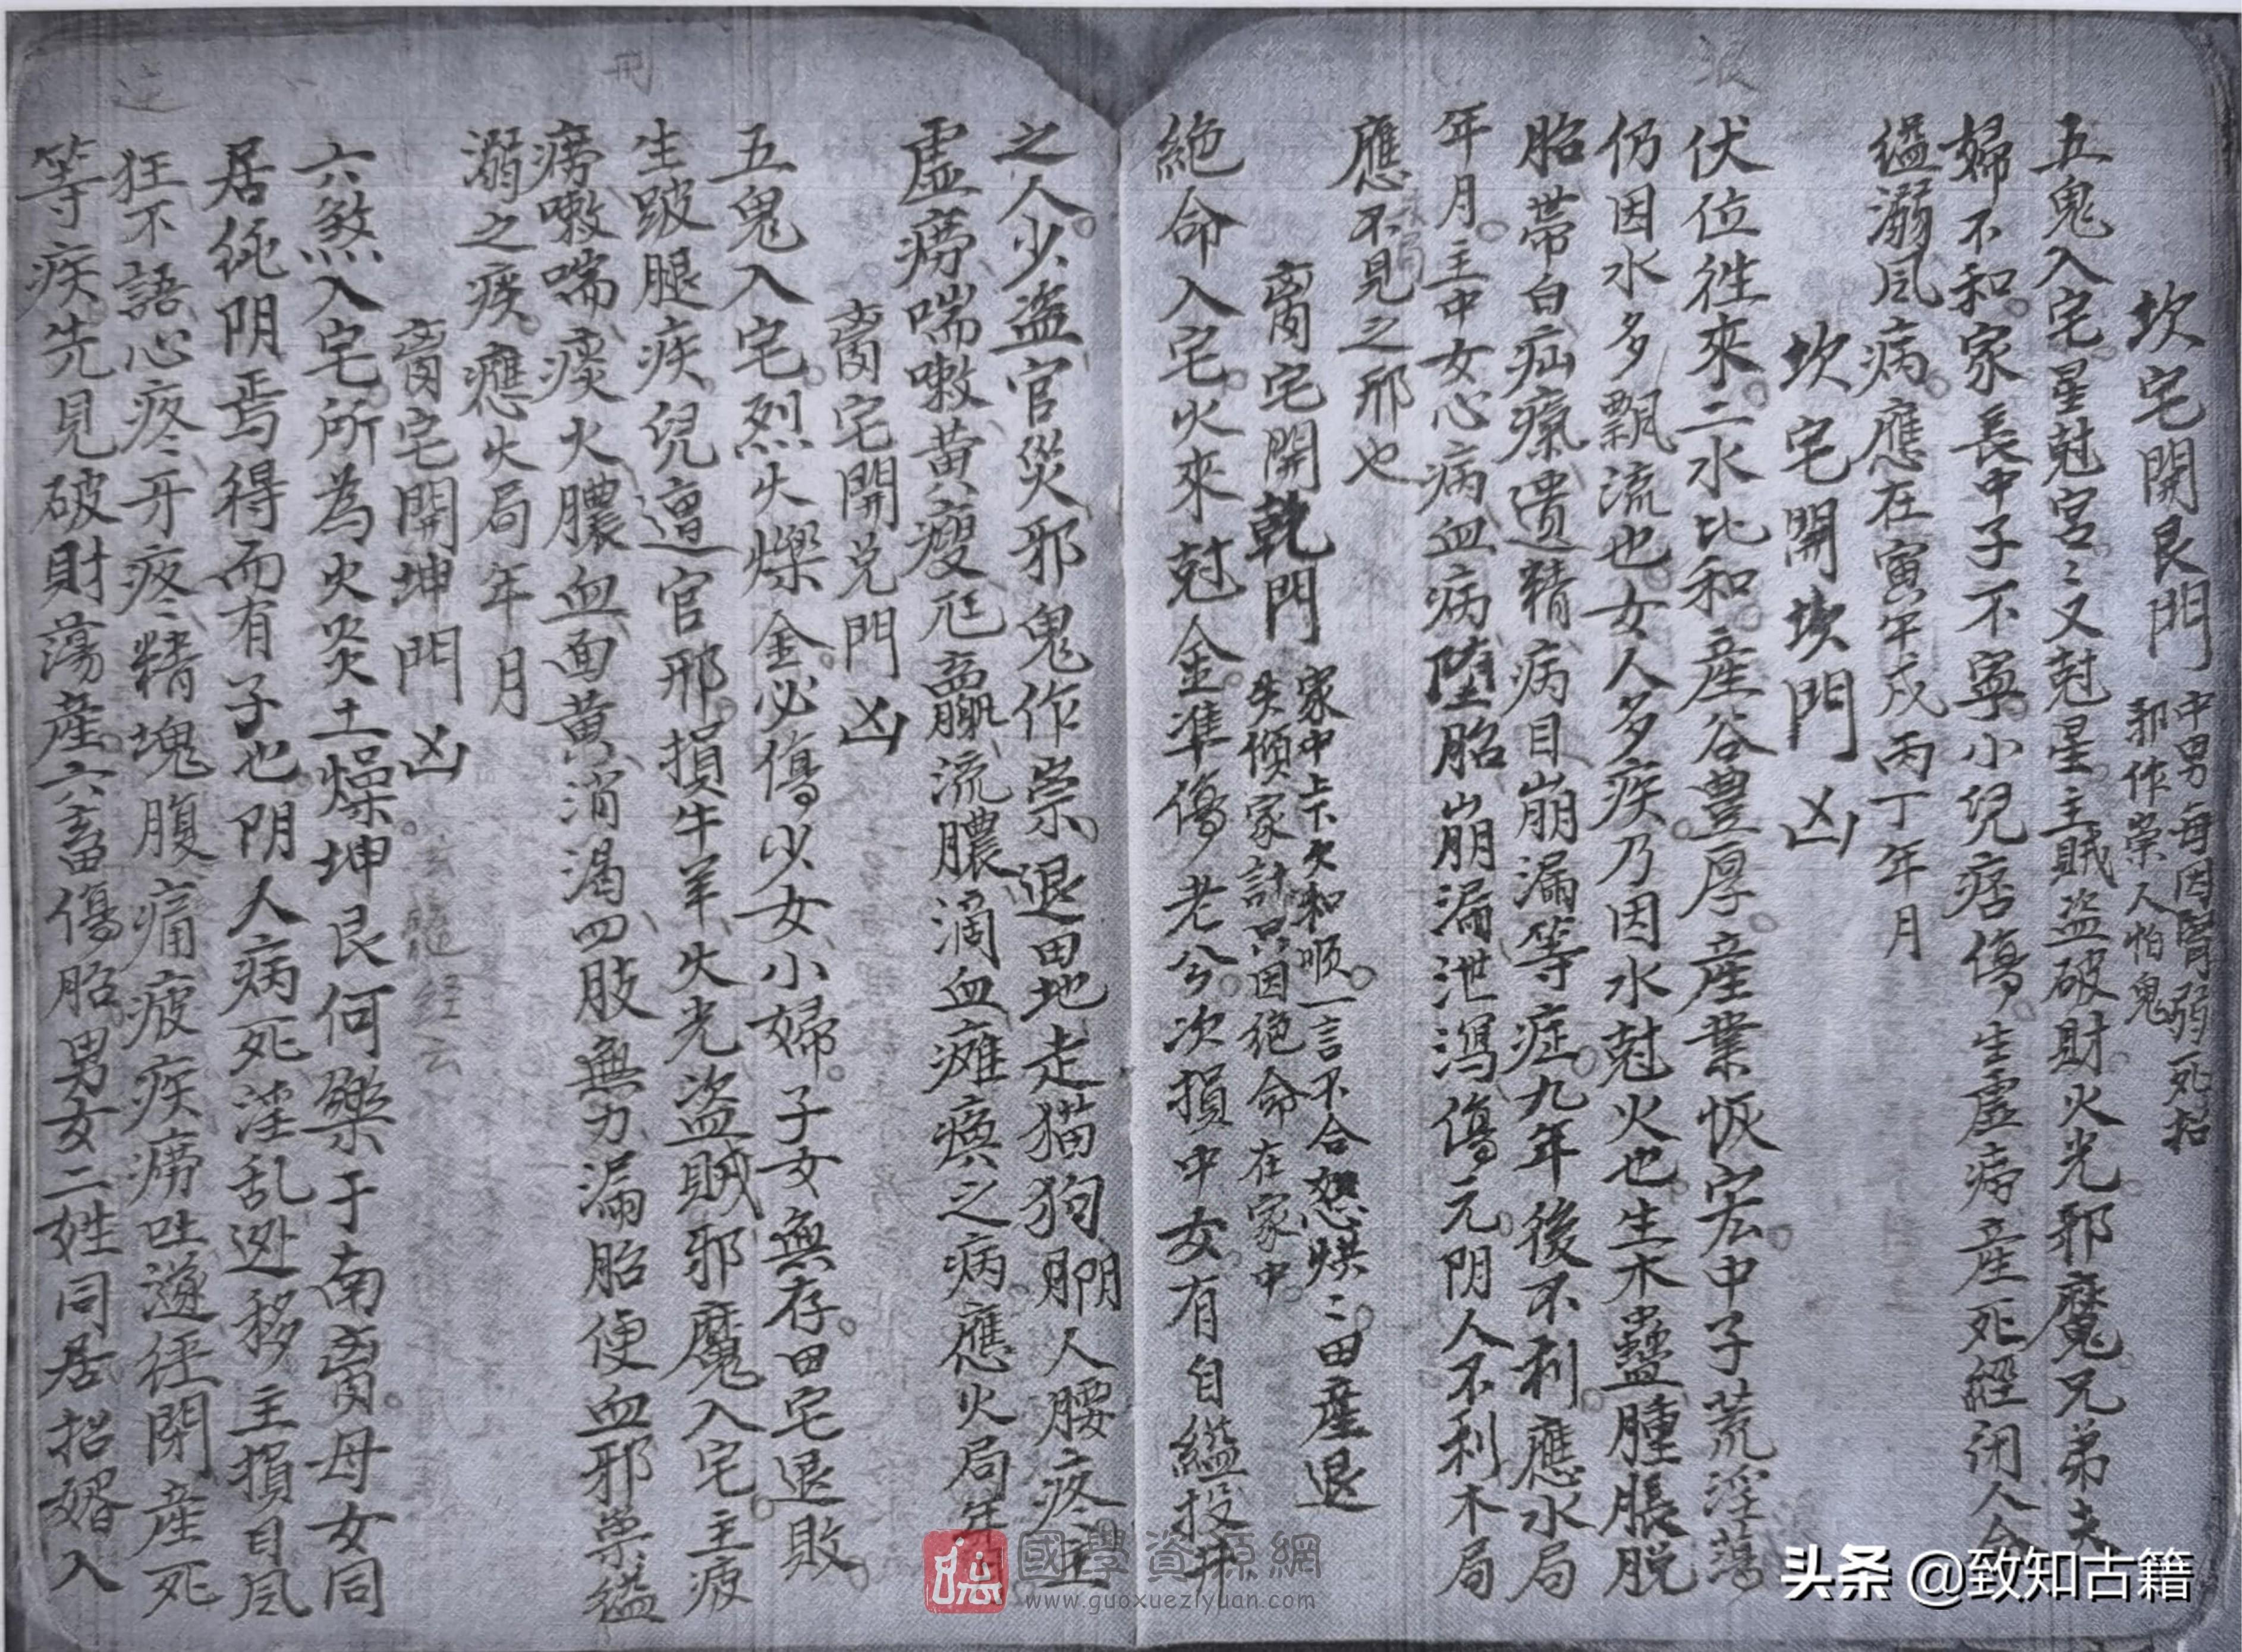 坎宅開艮門 中男每因腎弱死招
邪作祟人怕鬼
五鬼入宅星尅宮〻又尅星主賊盗破財火光邪魔兄弟夫
婦不和家長中子不寧小兒痞傷生虛癆産死經闭人命
縊溺風病應在寅午戌丙丁年月
坎宅開坎門 凶
伏位徃來二水比和産谷豊厚産業恢宏中子荒淫蕩
仍因水多飄流也女人多疾乃因水尅火也生木蠱腫脹脱
胎帶白疝瘰遺精病目崩漏等症九年後不利應水局
年月主中女心病血病堕胎崩漏泄瀉傷元阴人不利木局
應不見之邪也
离宅開乾門 家中上下欠和順一言不合怒烘〻田産退
失傾家計只因絶命在家中
絶命入宅火來尅金準傷老父次損中女有自縊投井
之人少盗官災邪鬼作祟退田地走猫狗 人腰疼主
虛癆喘嗽黄瘦尪羸流膿滴血癱瘓之病應火局年
离宅開兑門 凶
五鬼入宅烈火爍金必傷少女小婦子女無存田宅退敗
生跛腿疾兒遭官邪損牛羊火光盗賊邪魔入宅主疫
癆嗽喘痰火膿血面黄消渴四肢無力漏胎便血邪祟縊
溺之疾應火局年月
离宅開坤門 凶
六煞入宅所為火炎土燥坤艮何樂于南离母女同
居純阴焉得而有子也阴人病死淫乱逃移主損目風
狂不語心疼牙疼精塊腹痛疲疾癆吐 經閉産死
等疾先見破財蕩産六畜傷胎男女二姓同居招婿入
國學資源網
www.guoxueziyuan.com
头条 @致知古籍